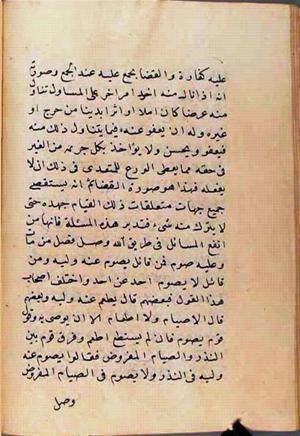 عليه كفارة والقضا يجمع عليه عند الجمع وصورة
انه اذا نال منه اخذ امرا خر على المساول تناول
منه عرضا كان املا او اثرا بدينا من حرج او
غيره وله ان يعفو عنه فيما يتناول ذلك منه
فيعفو ويحسن ولا يؤاخذ بكل جريمة من الغير
في حقه مما يعطى الورع للمتعدى فى ذلك ان لا
يفعله فهذا هو صورة القضا ثم انه يستقصى
جميع جهات متعلقات ذلك القيام جهده حتى
لا يترك منه شىء فتدبر هذه المسئلة فانها من
انفع المسائل فى طريق الله وصل فصل من مات
وعليه صوم فمن قائل يصوم عنه وليه ومن
قائل لا يصوم احد عن احد واختلف اصحاب
هذا القول فبعضهم قال يطعم عنه وليه وبعضهم
قال لا صيام ولا اطعام الا ان يوصى به وقال
قوم يصوم فان لم يستطع اطعم وفرق قوم بين
النذر والصيام المفروض فقالوا يصوم عنه
وليه فى النذر ولا يصوم فى الصيام المفروض
وصل